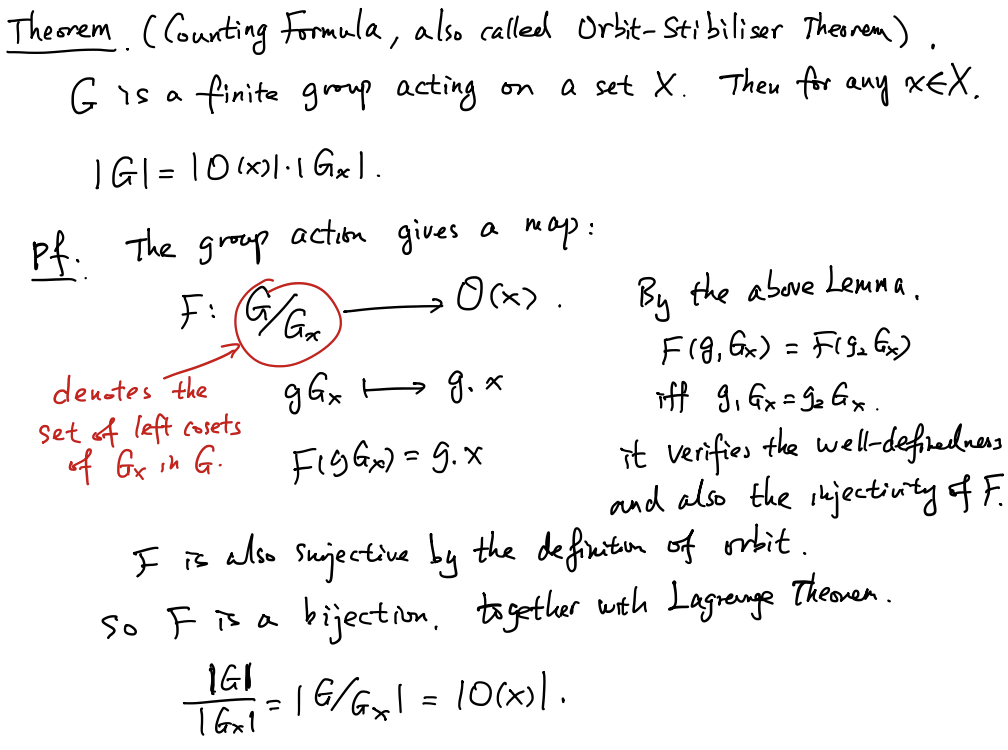 Theorem. (Counting Formula, also called Orbit-Stibiliser Theorem).
G is a finite group acting on a set X. Then for any x∈X.
|G| = |O(x)|·|Gₓ|.
Pf. The group action gives a map:
F: G/Gₓ ⟶ O(x).
gGₓ ⟼ g.x
F(gGₓ) = g.x
denotes the
set of left cosets
of Gₓ in G.
By the above Lemma.
F(g₁Gₓ) = F(g₂Gₓ)
iff g₁Gₓ = g₂Gₓ.
it verifies the well-definedness
and also the injectivity of F.
F is also surjective by the definition of orbit.
So F is a bijection. together with Lagrange Theorem.
|G|/|Gₓ| = |G/Gₓ| = |O(x)|.